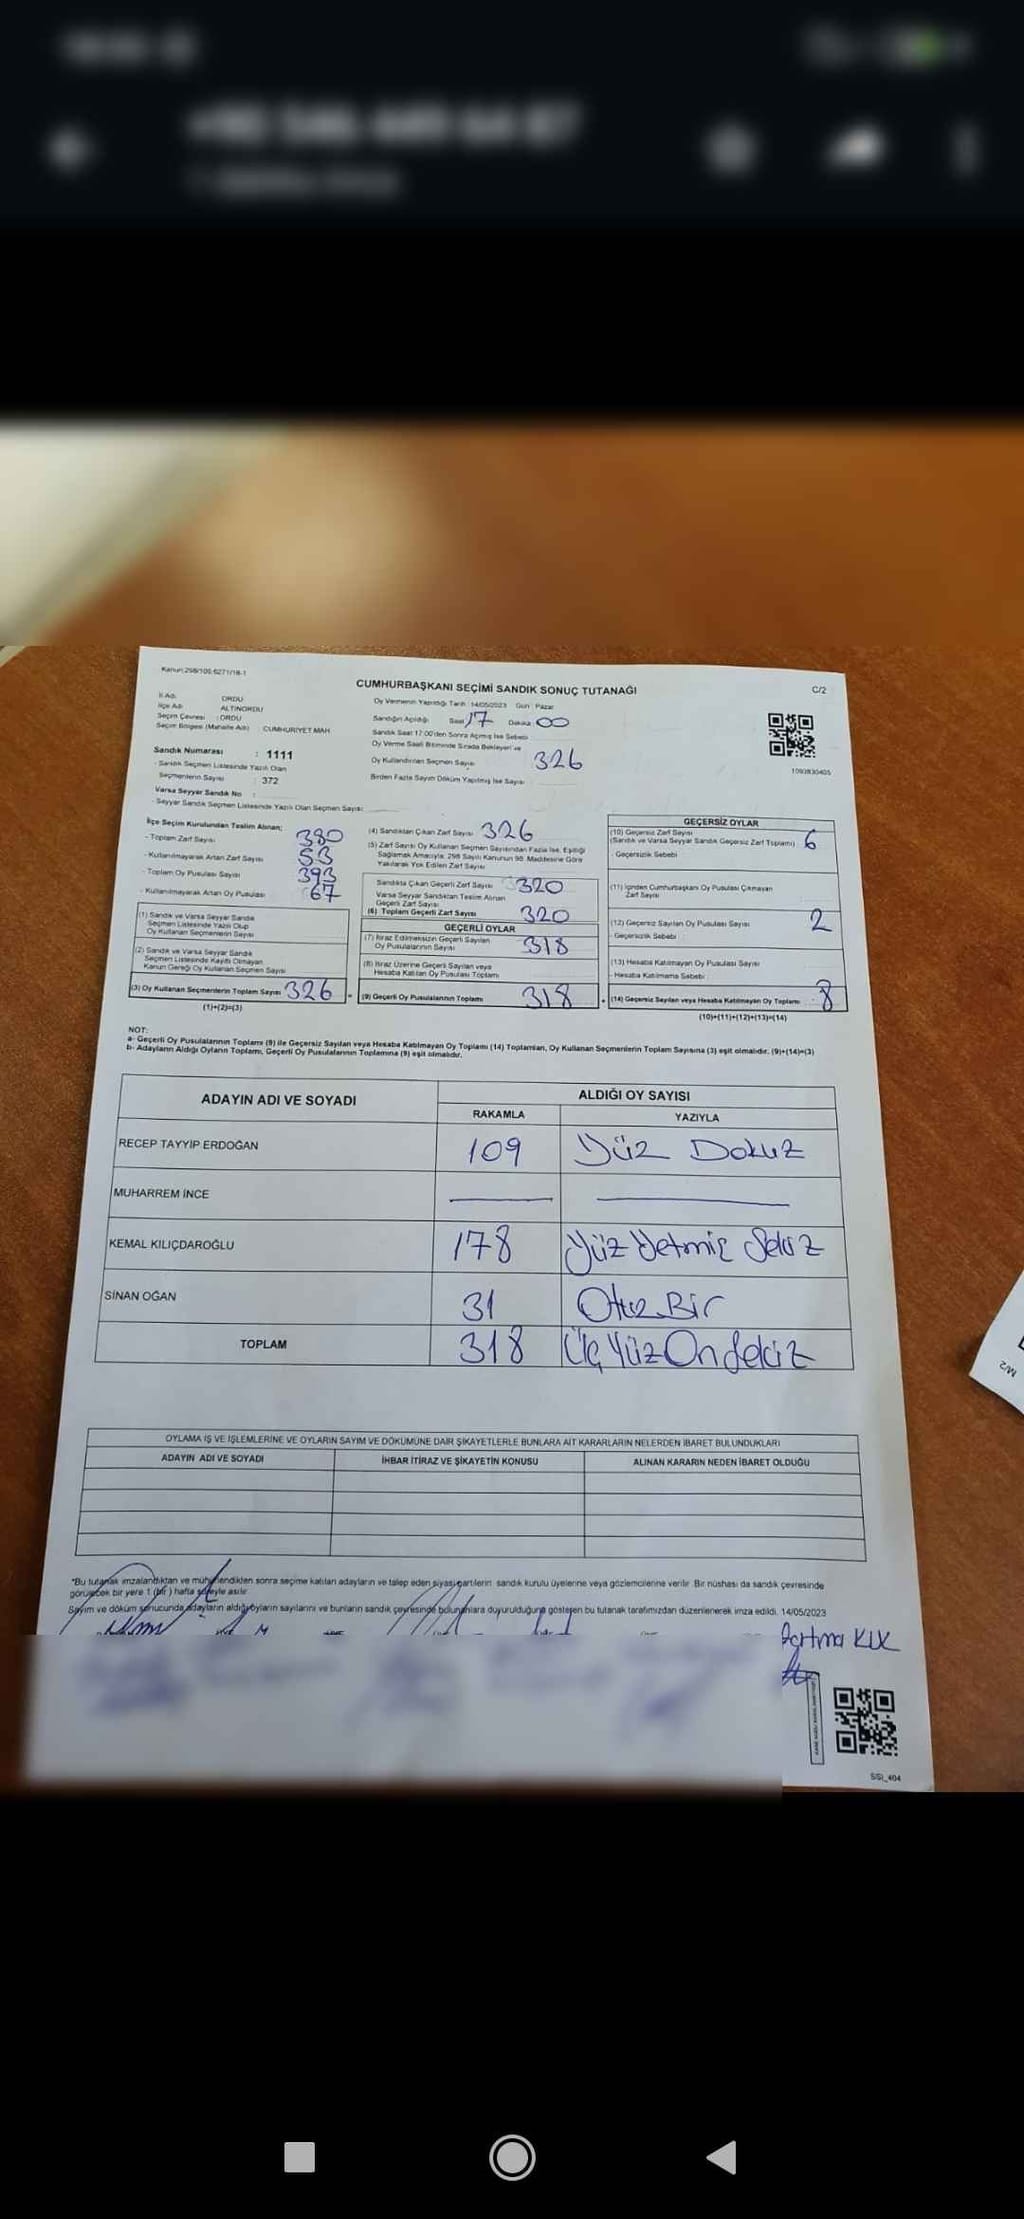 Kanun:298/100.6271/18-1
CUMHURBAŞKANI SEÇİMİ SANDIK SONUÇ TUTANAĞI
C/2
İl Adı : ORDU
İlçe Adı : ALTINORDU
Seçim Çevresi : ORDU
Seçim Bölgesi (Mahalle Adı) : CUMHURİYET MAH
Oy Vermenin Yapıldığı Tarih :14/05/2023 Gün : Pazar
Sandığın Açıldığı Saat 17 Dakika 00
Sandık Saat 17.00'den Sonra Açılmış İse Sebebi
Oy Verme Saati Bitiminde Sırada Bekleyen ve
Oy Kullandırılan Seçmen Sayısı 326
Birden Fazla Sayım Döküm Yapılmış İse Sayısı
1093830405
Sandık Numarası : 1111
- Sandık Seçmen Listesinde Yazılı Olan
Seçmenlerin Sayısı : 372
Varsa Seyyar Sandık No :
- Seyyar Sandık Seçmen Listesinde Yazılı Olan Seçmen Sayısı :
İlçe Seçim Kurulundan Teslim Alınan;
- Toplam Zarf Sayısı 380
- Kullanılmayarak Artan Zarf Sayısı 53
- Toplam Oy Pusulası Sayısı 393
- Kullanılmayarak Artan Oy Pusulası 67
(1) Sandık ve Varsa Seyyar Sandık
Seçmen Listesinde Yazılı Olup
Oy Kullanan Seçmenlerin Sayısı
(2) Sandık ve Varsa Seyyar Sandık
Seçmen Listesinde Kayıtlı Olmayan
Kanun Gereği Oy Kullanan Seçmen Sayısı
(3) Oy Kullanan Seçmenlerin Toplam Sayısı 326
(1)+(2)=(3)
(4) Sandıktan Çıkan Zarf Sayısı 326
(5) Zarf Sayısı Oy Kullanan Seçmen Sayısından Fazla İse, Eşitliği
Sağlamak Amacıyla; 298 Sayılı Kanunun 98. Maddesine Göre
Yakılarak Yok Edilen Zarf Sayısı
Sandıkta Çıkan Geçerli Zarf Sayısı 320
Varsa Seyyar Sandıktan Teslim Alınan
Geçerli Zarf Sayısı
(6) Toplam Geçerli Zarf Sayısı 320
GEÇERLİ OYLAR
(7) İtiraz Edilmeksizin Geçerli Sayılan
Oy Pusulalarının Sayısı 318
(8) İtiraz Üzerine Geçerli Sayılan veya
Hesaba Katılan Oy Pusulası Toplamı
(9) Geçerli Oy Pusulalarının Toplamı 318
GEÇERSİZ OYLAR
(10) Geçersiz Zarf Sayısı
(Sandık ve Varsa Seyyar Sandık Geçersiz Zarf Toplamı) 6
- Geçersizlik Sebebi
(11) İçinden Cumhurbaşkanı Oy Pusulası Çıkmayan
Zarf Sayısı
(12) Geçersiz Sayılan Oy Pusulası Sayısı 2
- Geçersizlik Sebebi
(13) Hesaba Katılmayan Oy Pusulası Sayısı
- Hesaba Katılmama Sebebi
(14) Geçersiz Sayılan veya Hesaba Katılmayan Oy Toplamı 8
(10)+(11)+(12)+(13)=(14)
NOT:
a- Geçerli Oy Pusulalarının Toplamı (9) ile Geçersiz Sayılan veya Hesaba Katılmayan Oy Toplamı (14) Toplamları, Oy Kullanan Seçmenlerin Toplam Sayısına (3) eşit olmalıdır. (9)+(14)=(3)
b- Adayların Aldığı Oyların Toplamı, Geçerli Oy Pusulalarının Toplamına (9) eşit olmalıdır.
ADAYIN ADI VE SOYADI
ALDIĞI OY SAYISI
RAKAMLA YAZIYLA
RECEP TAYYİP ERDOĞAN 109 Yüz Dokuz
MUHARREM İNCE
KEMAL KILIÇDAROĞLU 178 Yüz Yetmiş Sekiz
SİNAN OĞAN 31 Otuz Bir
TOPLAM 318 Üç Yüz On Sekiz
M/2
OYLAMA İŞ VE İŞLEMLERİNE VE OYLARIN SAYIM VE DÖKÜMÜNE DAİR ŞİKAYETLERLE BUNLARA AİT KARARLARIN NELERDEN İBARET BULUNDUKLARI
ADAYIN ADI VE SOYADI İHBAR İTİRAZ VE ŞİKAYETİN KONUSU ALINAN KARARIN NEDEN İBARET OLDUĞU
*Bu tutanak imzalandıktan ve mühürlendikten sonra seçime katılan adayların ve talep eden siyasi partilerin sandık kurulu üyelerine veya gözlemcilerine verilir. Bir nüshası da sandık çevresinde
görülecek bir yere 1 (bir) hafta süreyle asılır.
Sayım ve döküm sonucunda adayların aldığı oyların sayılarını ve bunların sandık çevresinde bulunanlara duyurulduğunu gösteren bu tutanak tarafımızdan düzenlenerek imza edildi. 14/05/2023
SSI_404